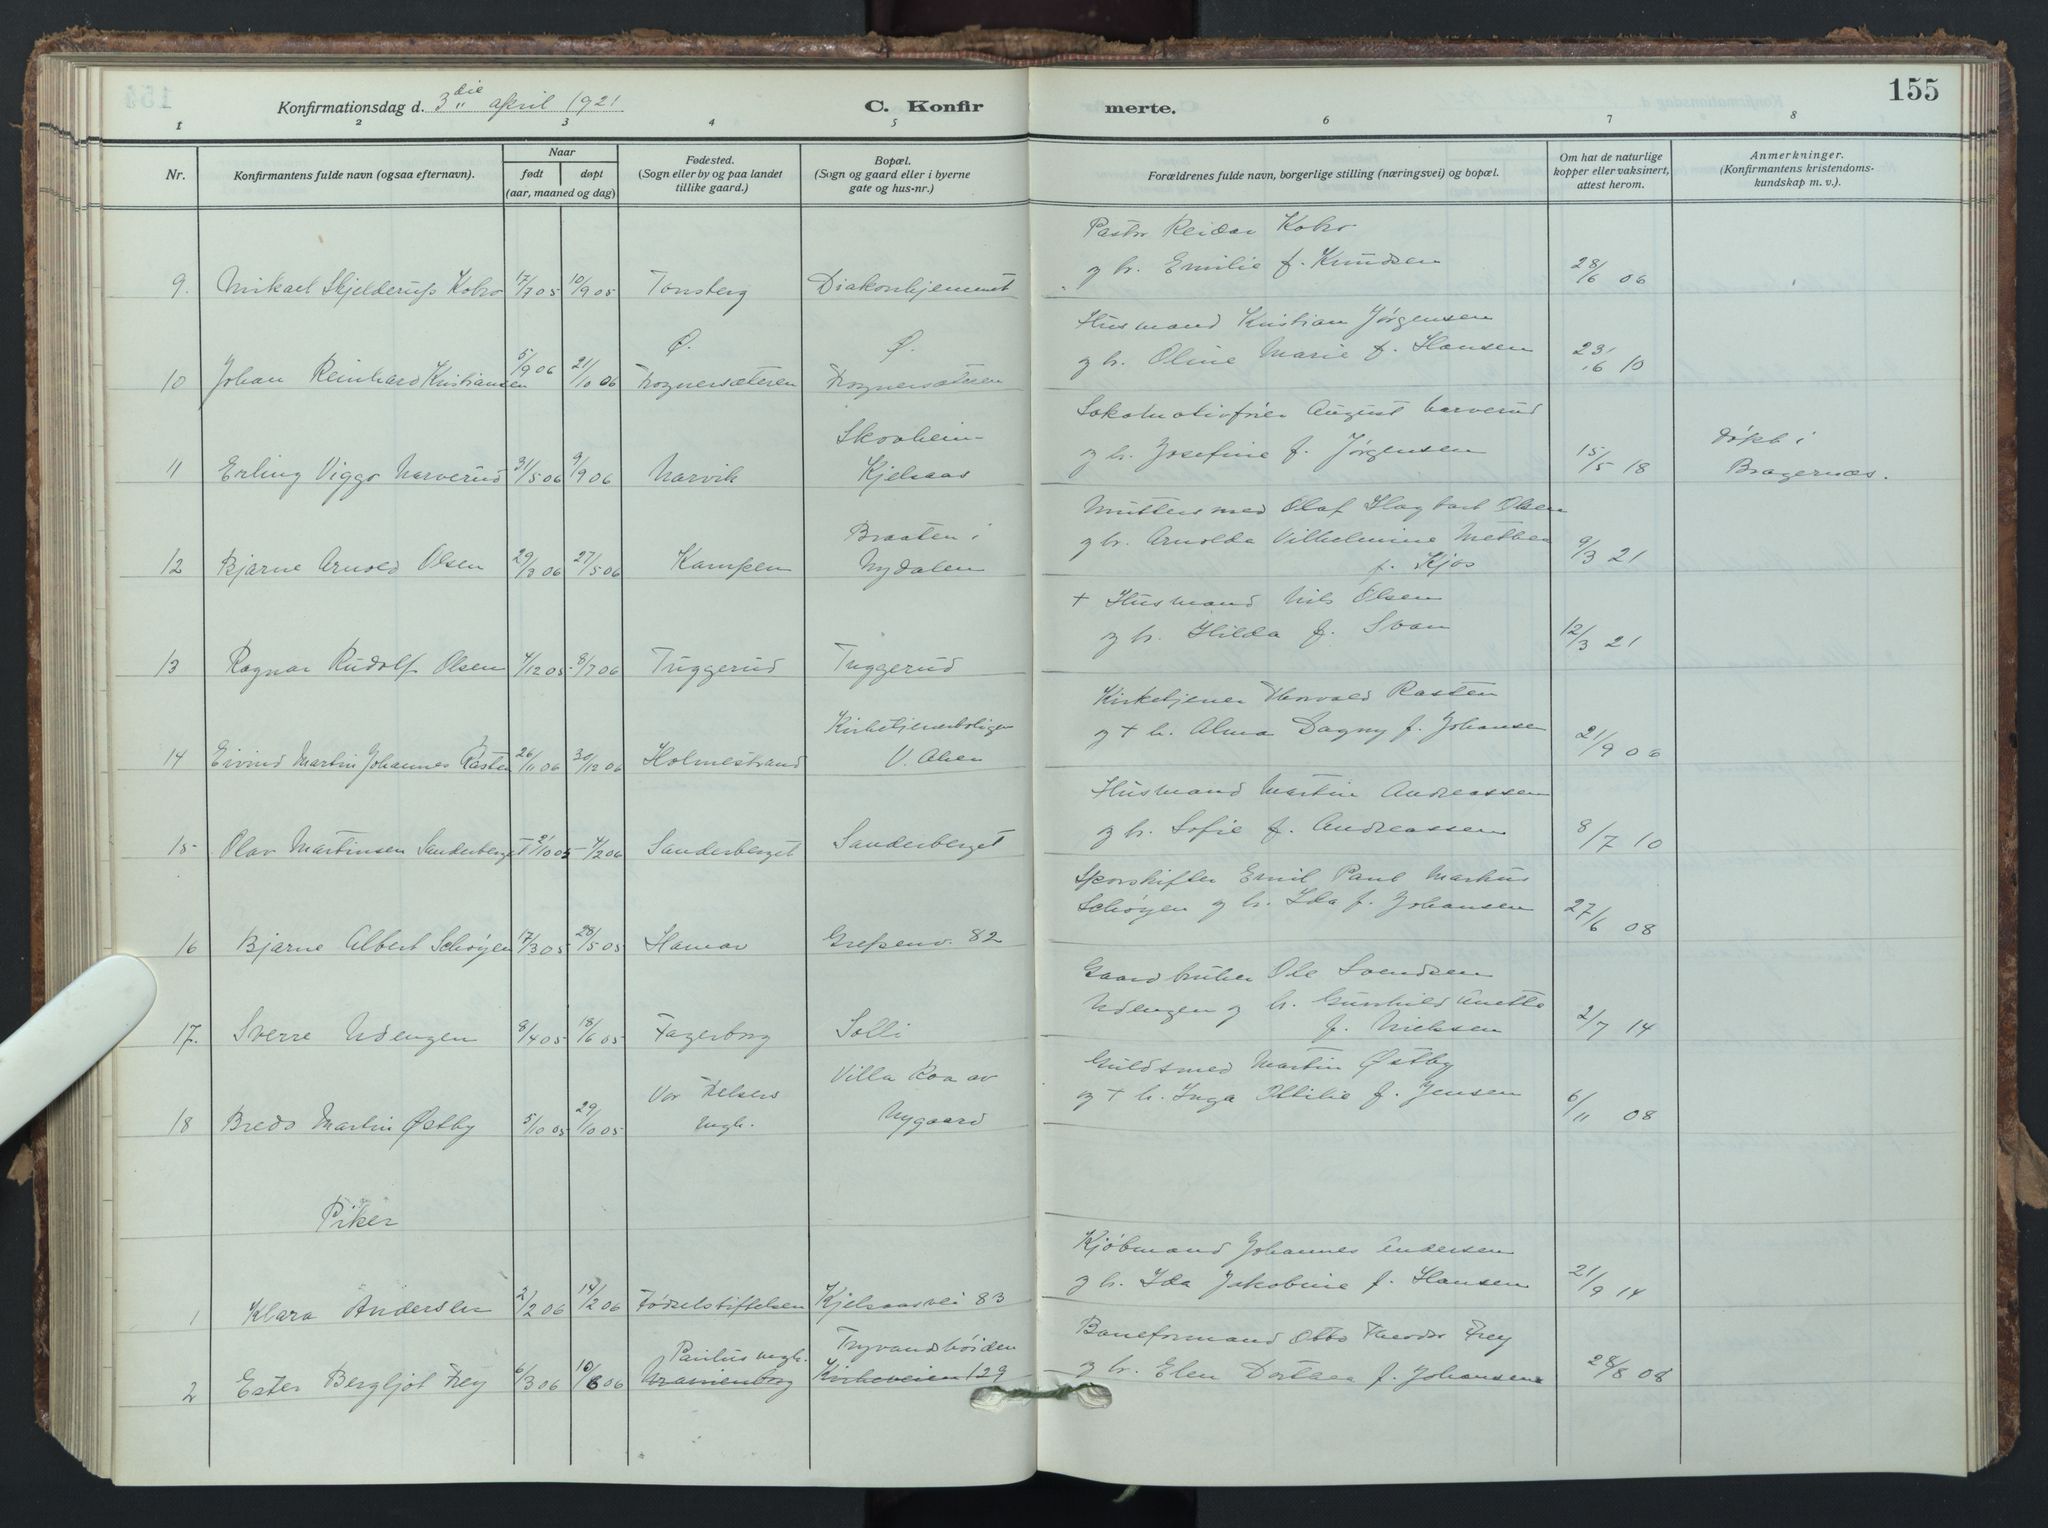 155
Konfirmationsdag d. 3die april 1921 C. Konfir merte.
1 2 3 4 5 6 7 8
Nr. Konfirmantens fulde navn (ogsaa efternavn). Naar født døpt (aar, maaned og dag) Fødested. (Sogn eller by og paa landet tillike gaard.) Bopæl. (Sogn og gaard eller i byerne gate og hus-nr.) Forældrenes fulde navn, borgerlige stilling (næringsvei) og bopæl. Om hat de naturlige kopper eller vaksinert, attest herom. Anmerkninger. (Konfirmantens kristendomskundskap m. v.).
Pastor Reidar Kobro
9. Mikael Skjelderup Kobro 17/7 05 10/9 05 Tønsberg Diakonhjemmet og h. Emilie f. Knudsen 28/6 06
Ø. Ø. Husmand Kristian Jørgensen
10 Johan Reinhard Kristiansen 5/9 06 21/10 06 Frognersæteren Frognersæteren og h. Oline Marie f. Hansen 23/6 10
Skovheim Lokomotivfrier August Narverud døpt i
11 Erling Viggo Narverud 31/5 06 9/9 06 Narvik Kjelsaas og h. Josefine f. Jørgensen 15/5 18 Bragernæs.
Braaten i Olaf Hagbart Olsen
12 Bjarne Arnold Olsen 29/3 06 27/5 06 Kampen Nydalen og h. Arnolda Vilhelmine f. Kjøs 9/3 21
+ Husmand Nils Olsen
13 Ragnar Rudolf Olsen 4/12 05 8/7 06 Tuggerud Tuggerud og h. Hilda f. Svan 12/3 21
Kirketjenerboligen Kirketjener Thorvald Rasten
14 Eivind Martin Johannes Rasten 26/11 06 30/12 06 Holmestrand V. Aker og + h. Alma Dagny f. Johansen 21/9 06
Husmand Martin Andreassen
15 Olav Martinsen Sanderberget 2/10 05 4/2 06 Sanderberget Sanderberget og h. Sofie f. Andreassen 8/7 10
Sporskifter Emil Paul Markus
16 Bjarne Albert Schøyen 17/3 05 28/5 05 Hamar Grefsenv. 82 Schøyen og h. Ida f. Johansen 27/6 08
Gaardbruker Ole Svendsen
17. Sverre Udengen 8/4 05 18/6 05 Fagerborg Solli Udengen og h. Gunhild Anette f. Nielsen 2/7 14
Vor Frelsers Villa Roa av Guldsmed Martin Østby
18 Bredo Martin Østby 5/10 05 29/10 05 mgh. Nygaard og + h. Inga Ottilie f. Jensen 6/11 08
Piker
Kjøbmand Johannes Andersen
1 Klara Andersen 2/2 06 14/2 06 Fødselstiftelsen Kjelsaasvei 83 og h. Ida Jakobine f. Hansen 21/9 14
Paulus mgh. Tryvandshøiden Baneformand Otto Theodor Frey
2 Ester Bergljot Frey 6/3 06 10/6 06 Uranienborg Kirkeveien 129 og h. Elen Dortea f. Johansen 28/8 08